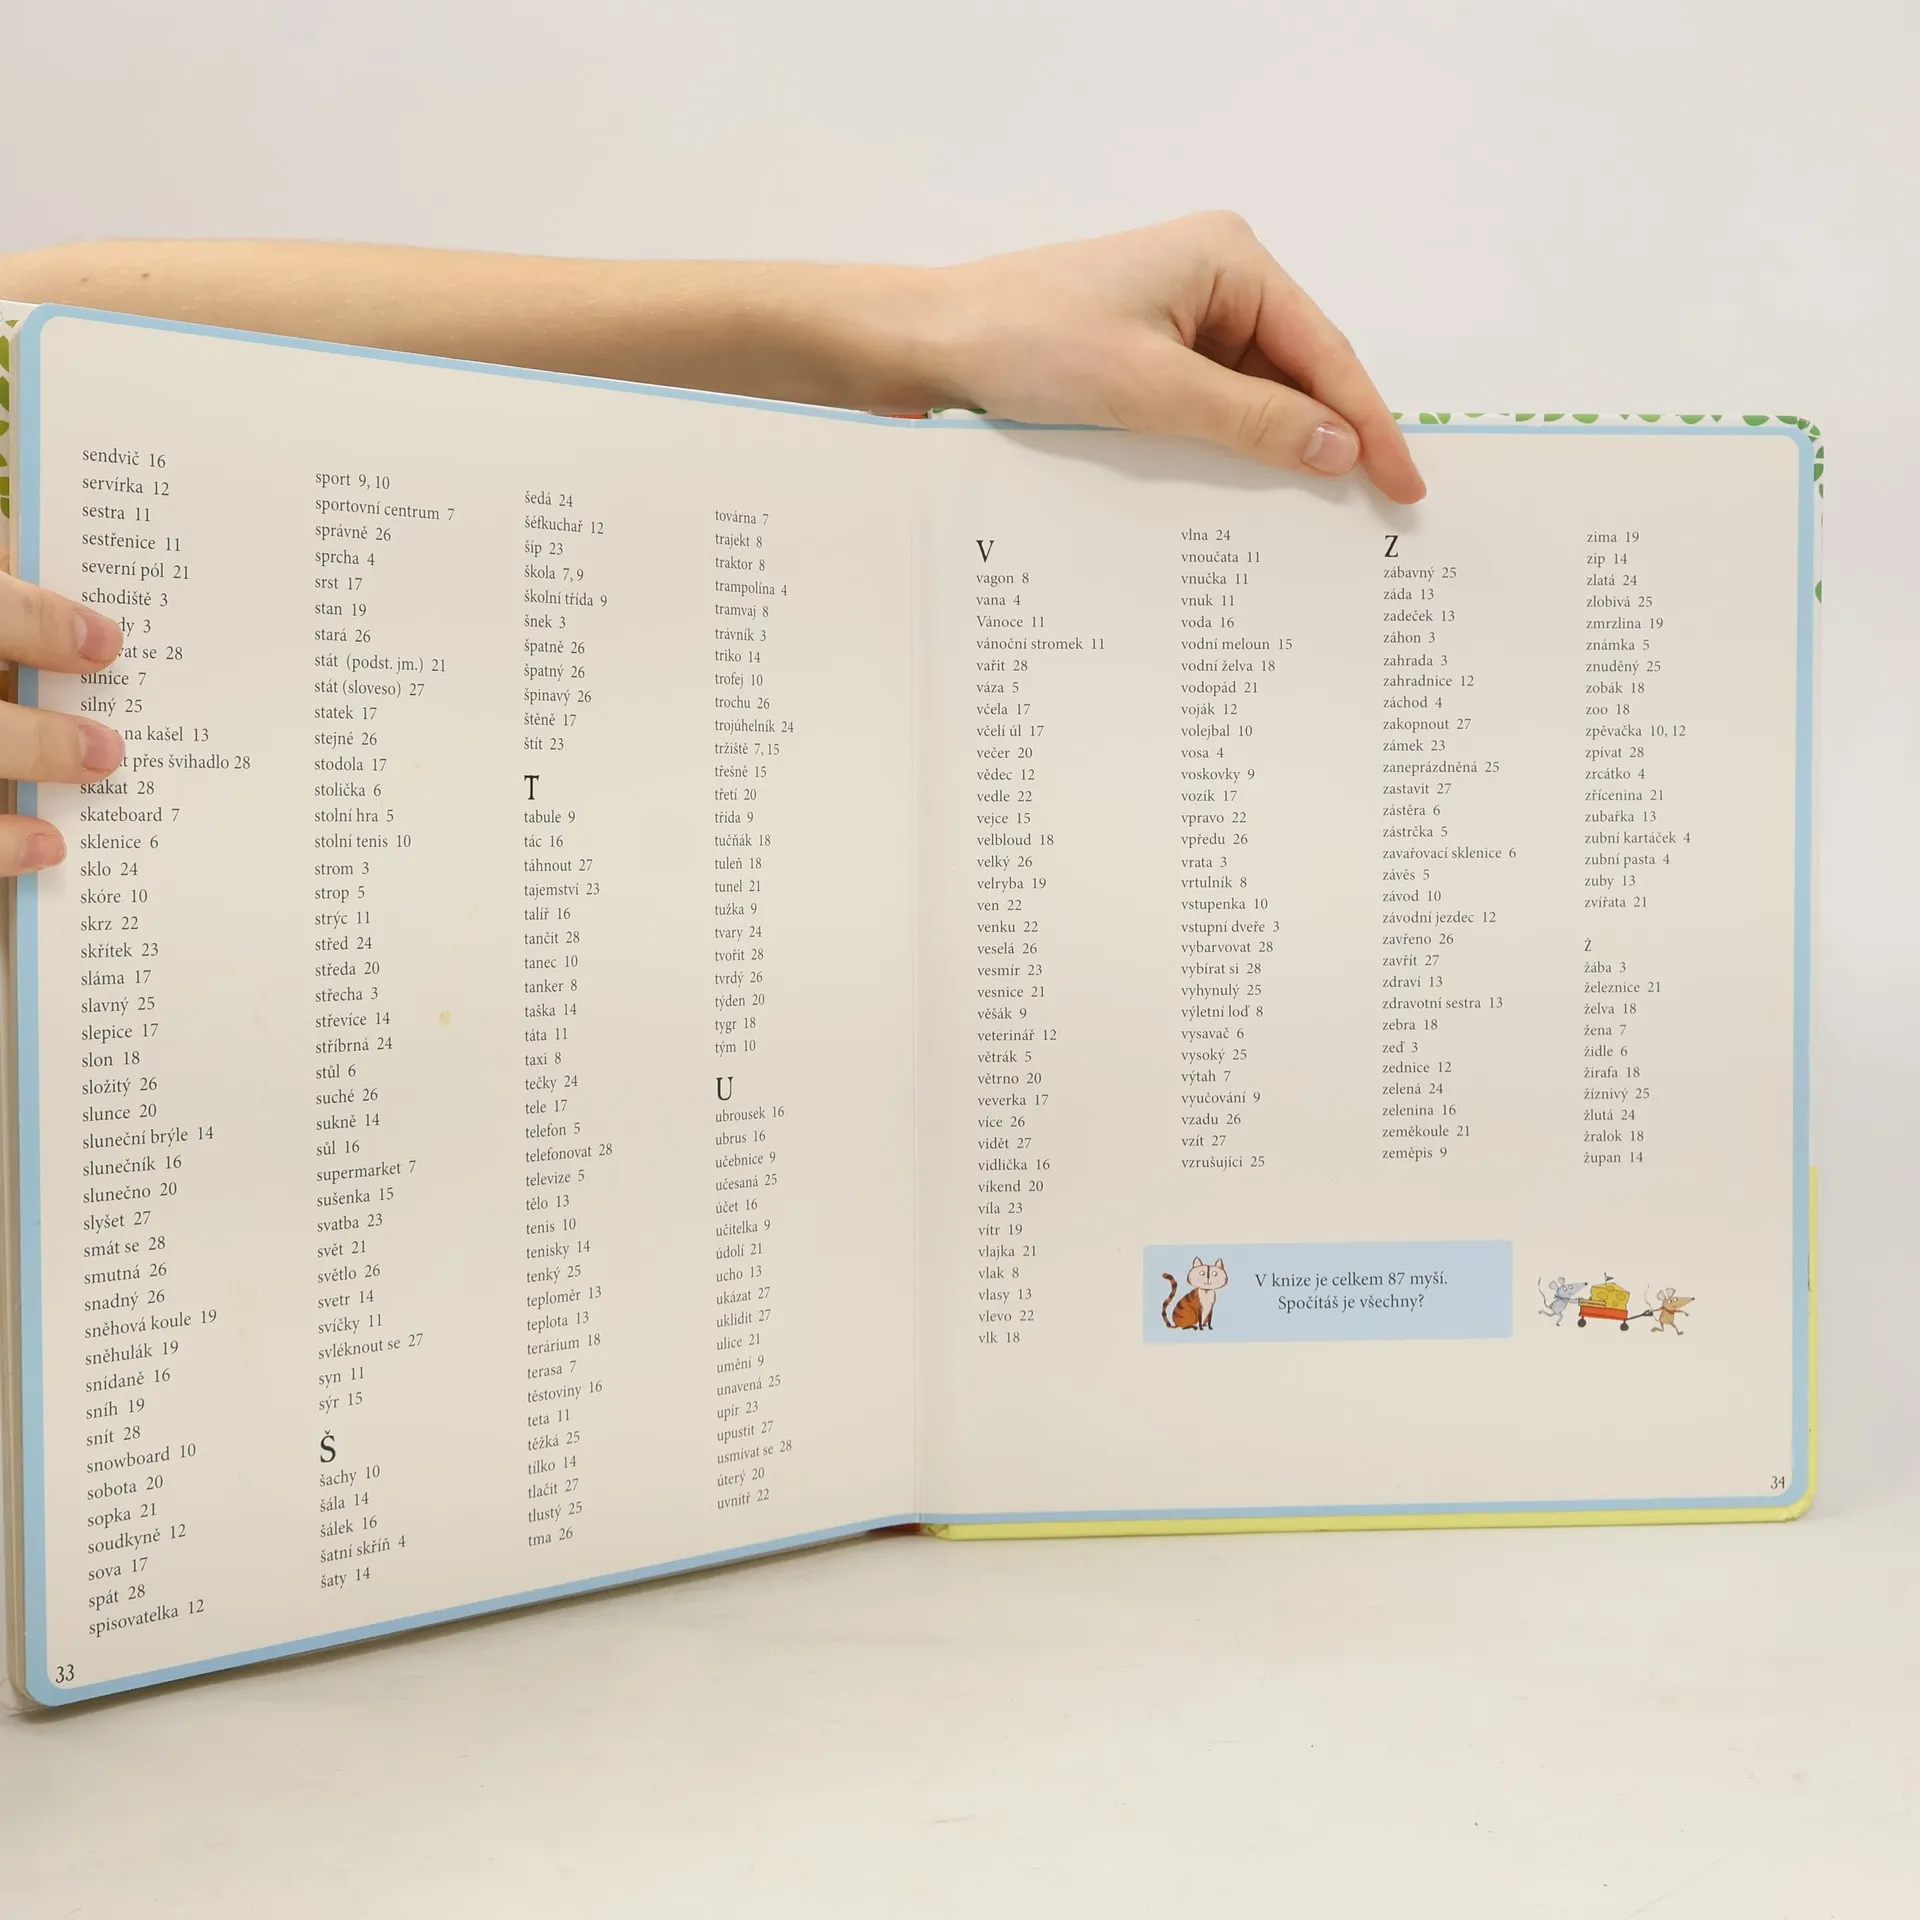 sendvič 16
servírka 12
sestra 11
sestřenice 11
severní pól 21
schodiště 3
3
se 28
silnice 7
silný 25
na kašel 13
přes švihadlo 28
skákat 28
skateboard 7
sklenice 6
sklo 24
skóre 10
skrz 22
skřítek 23
sláma 17
slavný 25
slepice 17
slon 18
složitý 26
slunce 20
sluneční brýle 14
slunečník 16
slunečno 20
slyšet 27
smát se 28
smutná 26
snadný 26
sněhová koule 19
sněhulák 19
snídaně 16
sníh 19
snít 28
snowboard 10
sobota 20
sopka 21
soudkyně 12
sova 17
spát 28
spisovatelka 12
sport 9, 10
sportovní centrum 7
správně 26
sprcha 4
srst 17
stan 19
stará 26
stát (podst. jm.) 21
stát (sloveso) 27
statek 17
stejné 26
stodola 17
stolička 6
stolní hra 5
stolní tenis 10
strom 3
strop 5
strýc 11
střed 24
středa 20
střecha 3
střevíce 14
stříbrná 24
stůl 6
suché 26
sukně 14
sůl 16
supermarket 7
sušenka 15
svatba 23
svět 21
světlo 26
svetr 14
svíčky 11
svléknout se 27
syn 11
sýr 15
Š
šachy 10
šála 14
šálek 16
šatní skříň 4
šaty 14
šedá 24
šéfkuchař 12
šíp 23
škola 7, 9
školní třída 9
šnek 3
špatně 26
špatný 26
špinavý 26
štěně 17
štít 23
T
tabule 9
tác 16
táhnout 27
tajemství 23
talíř 16
tančit 28
tanec 10
tanker 8
taška 14
táta 11
taxi 8
tečky 24
tele 17
telefon 5
telefonovat 28
televize 5
tělo 13
tenis 10
tenisky 14
tenký 25
teploměr 13
teplota 13
terárium 18
terasa 7
těstoviny 16
teta 11
těžká 25
tílko 14
tlačit 27
tlustý 25
tma 26
továrna 7
trajekt 8
traktor 8
trampolína 4
tramvaj 8
trávník 3
triko 14
trofej 10
trochu 26
trojúhelník 24
tržiště 7, 15
třešně 15
třetí 20
třída 9
tučňák 18
tuleň 18
tunel 21
tužka 9
tvary 24
tvořit 28
tvrdý 26
týden 20
tygr 18
tým 10
U
ubrousek 16
ubrus 16
učebnice 9
učesaná 25
účet 16
učitelka 9
údolí 21
ucho 13
ukázat 27
uklidit 27
ulice 21
umění 9
unavená 25
upír 23
upustit 27
usmívat se 28
úterý 20
uvnitř 22
33
V
vagon 8
vana 4
Vánoce 11
vánoční stromek 11
vařit 28
váza 5
včela 17
včelí úl 17
večer 20
vědec 12
vedle 22
vejce 15
velbloud 18
velký 26
velryba 19
ven 22
venku 22
veselá 26
vesmír 23
vesnice 21
věšák 9
veterinář 12
větrák 5
větrno 20
veverka 17
více 26
vidět 27
vidlička 16
víkend 20
víla 23
vítr 19
vlajka 21
vlak 8
vlasy 13
vlevo 22
vlk 18
vlna 24
vnoučata 11
vnučka 11
vnuk 11
voda 16
vodní meloun 15
vodní želva 18
vodopád 21
voják 12
volejbal 10
vosa 4
voskovky 9
vozík 17
vpravo 22
vpředu 26
vrata 3
vrtulník 8
vstupenka 10
vstupní dveře 3
vybarvovat 28
vybírat si 28
vyhynulý 25
výletní loď 8
vysavač 6
vysoký 25
výtah 7
vyučování 9
vzadu 26
vzít 27
vzrušující 25
Z
zábavný 25
záda 13
zadeček 13
záhon 3
zahrada 3
zahradnice 12
záchod 4
zakopnout 27
zámek 23
zaneprázdněná 25
zastavit 27
zástěra 6
zástrčka 5
zavařovací sklenice 6
závěs 5
závod 10
závodní jezdec 12
zavřeno 26
zavřít 27
zdraví 13
zdravotní sestra 13
zebra 18
zeď 3
zednice 12
zelená 24
zelenina 16
zeměkoule 21
zeměpis 9
zima 19
zip 14
zlatá 24
zlobivá 25
zmrzlina 19
známka 5
znuděný 25
zobák 18
zoo 18
zpěvačka 10, 12
zpívat 28
zrcátko 4
zřícenina 21
zubařka 13
zubní kartáček 4
zubní pasta 4
zuby 13
zvířata 21
Ž
žába 3
železnice 21
želva 18
žena 7
židle 6
žirafa 18
žíznivý 25
žlutá 24
žralok 18
župan 14
V knize je celkem 87 myší.
Spočítáš je všechny?
34